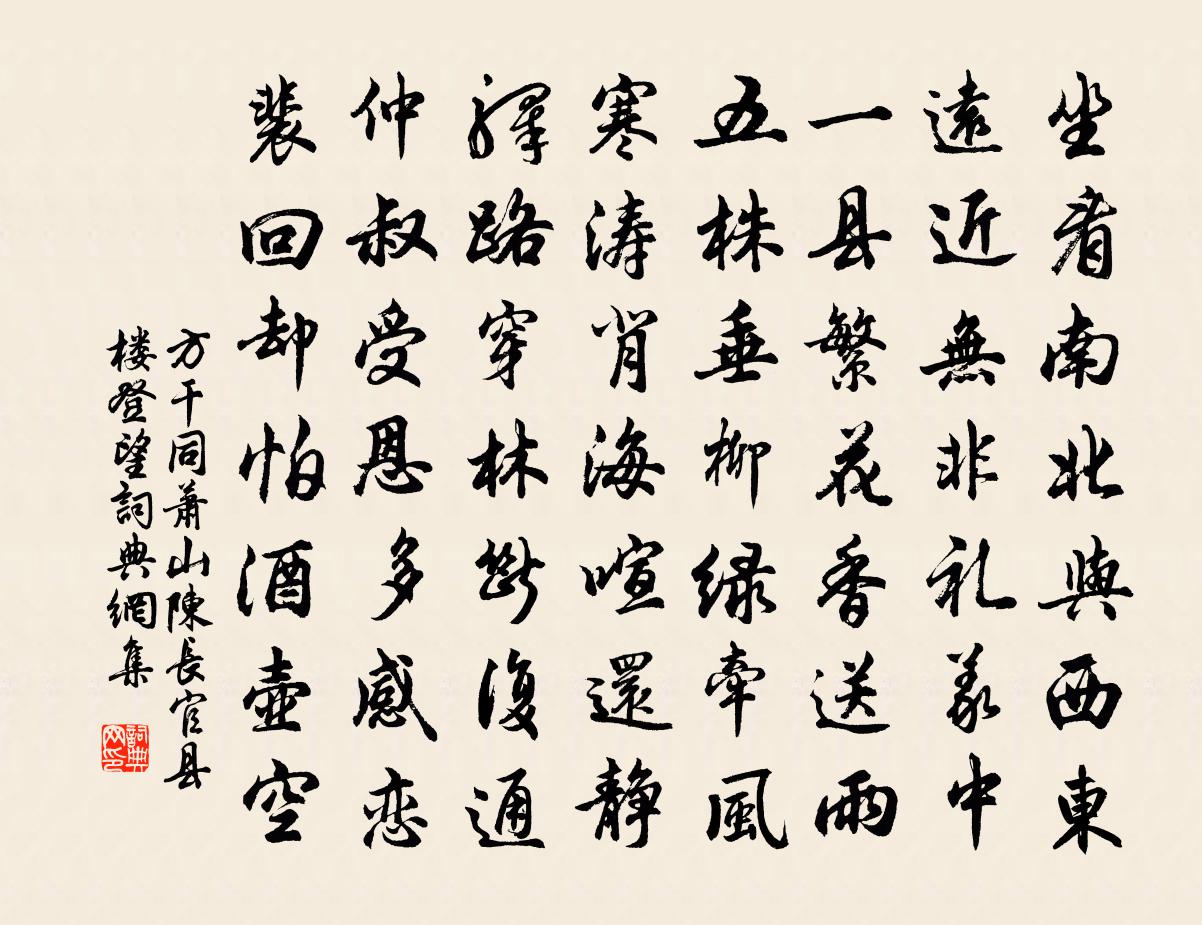 坐看南北與西東
遠近無非礼義中
一县繁花香送雨
五株垂柳绿牽風
寒涛背海喧還静
驛路穿林斷復通
仲叔受恩多感恋
裴回却怕酒壶空
方干同萧山陳長官县
楼登望詞典網集
詞典
网印